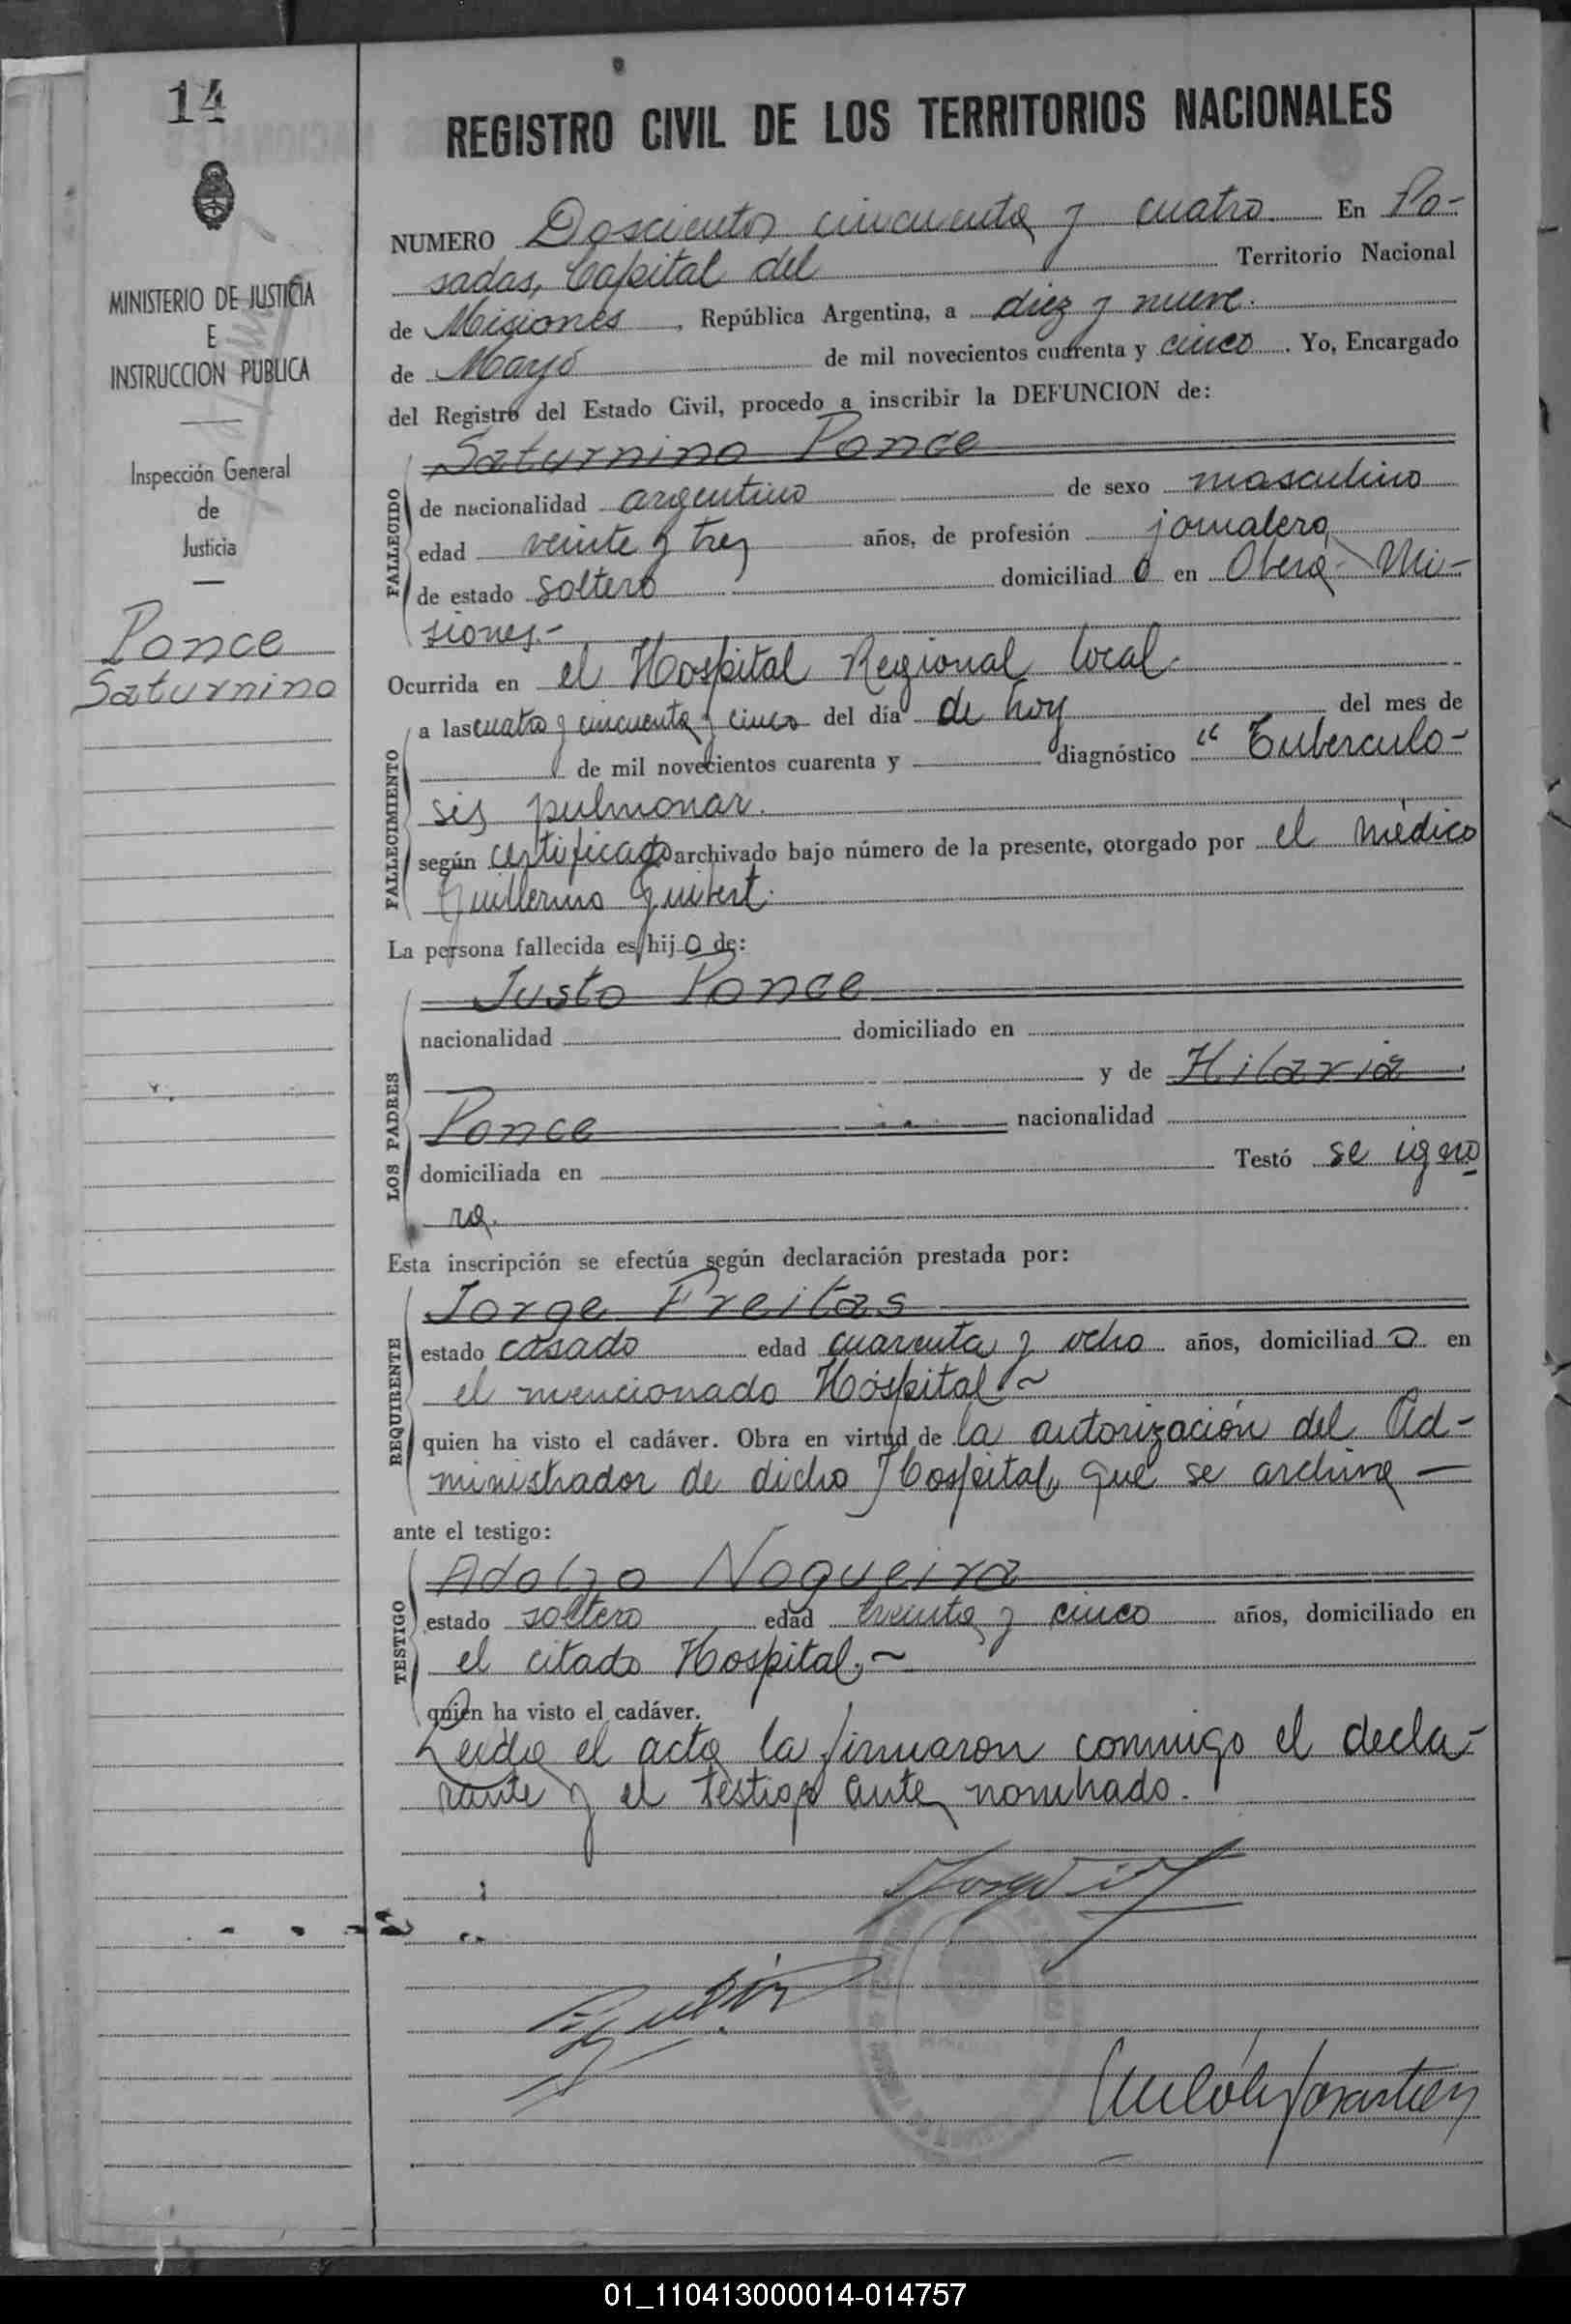 14
MINISTERIO DE JUSTICIA
E
INSTRUCCION PUBLICA
Inspección General
de
Justicia
Ponce
Saturnino
REGISTRO CIVIL DE LOS TERRITORIOS NACIONALES
NUMERO Doscientos cincuenta y cuatro. En Po-
sadas, Capital del Territorio Nacional
de Misiones, República Argentina, a diez y nueve.
de Mayo de mil novecientos cuarenta y cinco. Yo, Encargado
del Registro del Estado Civil, procedo a inscribir la DEFUNCION de:
FALLECIDO
Saturnino Ponce
de nacionalidad argentino de sexo masculino
edad veinte y tres años, de profesión jornalero,
de estado soltero domiciliad o en Oberá - Mi-
siones.-
Ocurrida en el Hospital Regional local.
FALLECIMIENTO
a las cuatro y cincuenta y cinco del día de hoy del mes de
de mil novecientos cuarenta y diagnóstico " Tuberculo-
sis pulmonar.
según certificado archivado bajo número de la presente, otorgado por el médico
Guillermo Guibert.
La persona fallecida es hij o de:
LOS PADRES
Justo Ponce
nacionalidad domiciliado en
y de Hilaria
Ponce nacionalidad
domiciliada en Testó se igno
ra.
Esta inscripción se efectúa según declaración prestada por:
REQUIRENTE
Jorge Freitas
estado casado edad cuarenta y ocho años, domiciliad o en
el mencionado Hospital ~
quien ha visto el cadáver. Obra en virtud de la autorización del Ad-
ministrador de dicho Hospital, que se archiva —
ante el testigo:
TESTIGO
Adolfo Nogueira
estado soltero edad treinta y cinco años, domiciliado en
el citado Hospital, ~
quien ha visto el cadáver.
Leída el acta la firmaron conmigo el decla-
rante y el testigo antes nombrado.
01_110413000014-014757